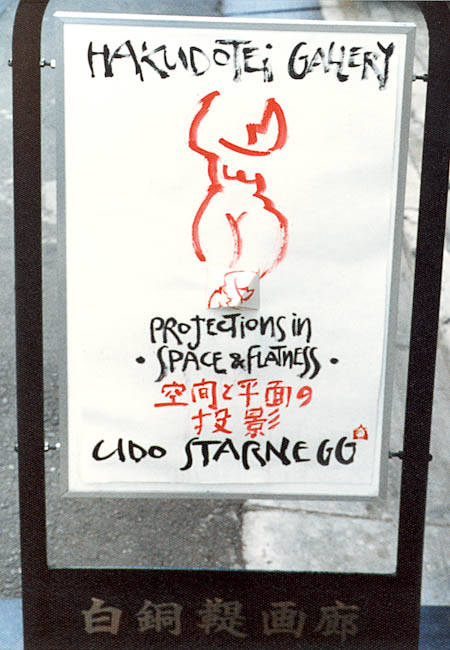 HAKUDOTEi GALLERY
PROJECTIONS in
• SPACE & FLATNESS •
空間と平面の
投影
UDO STARNEGG
白銅鞮画廊